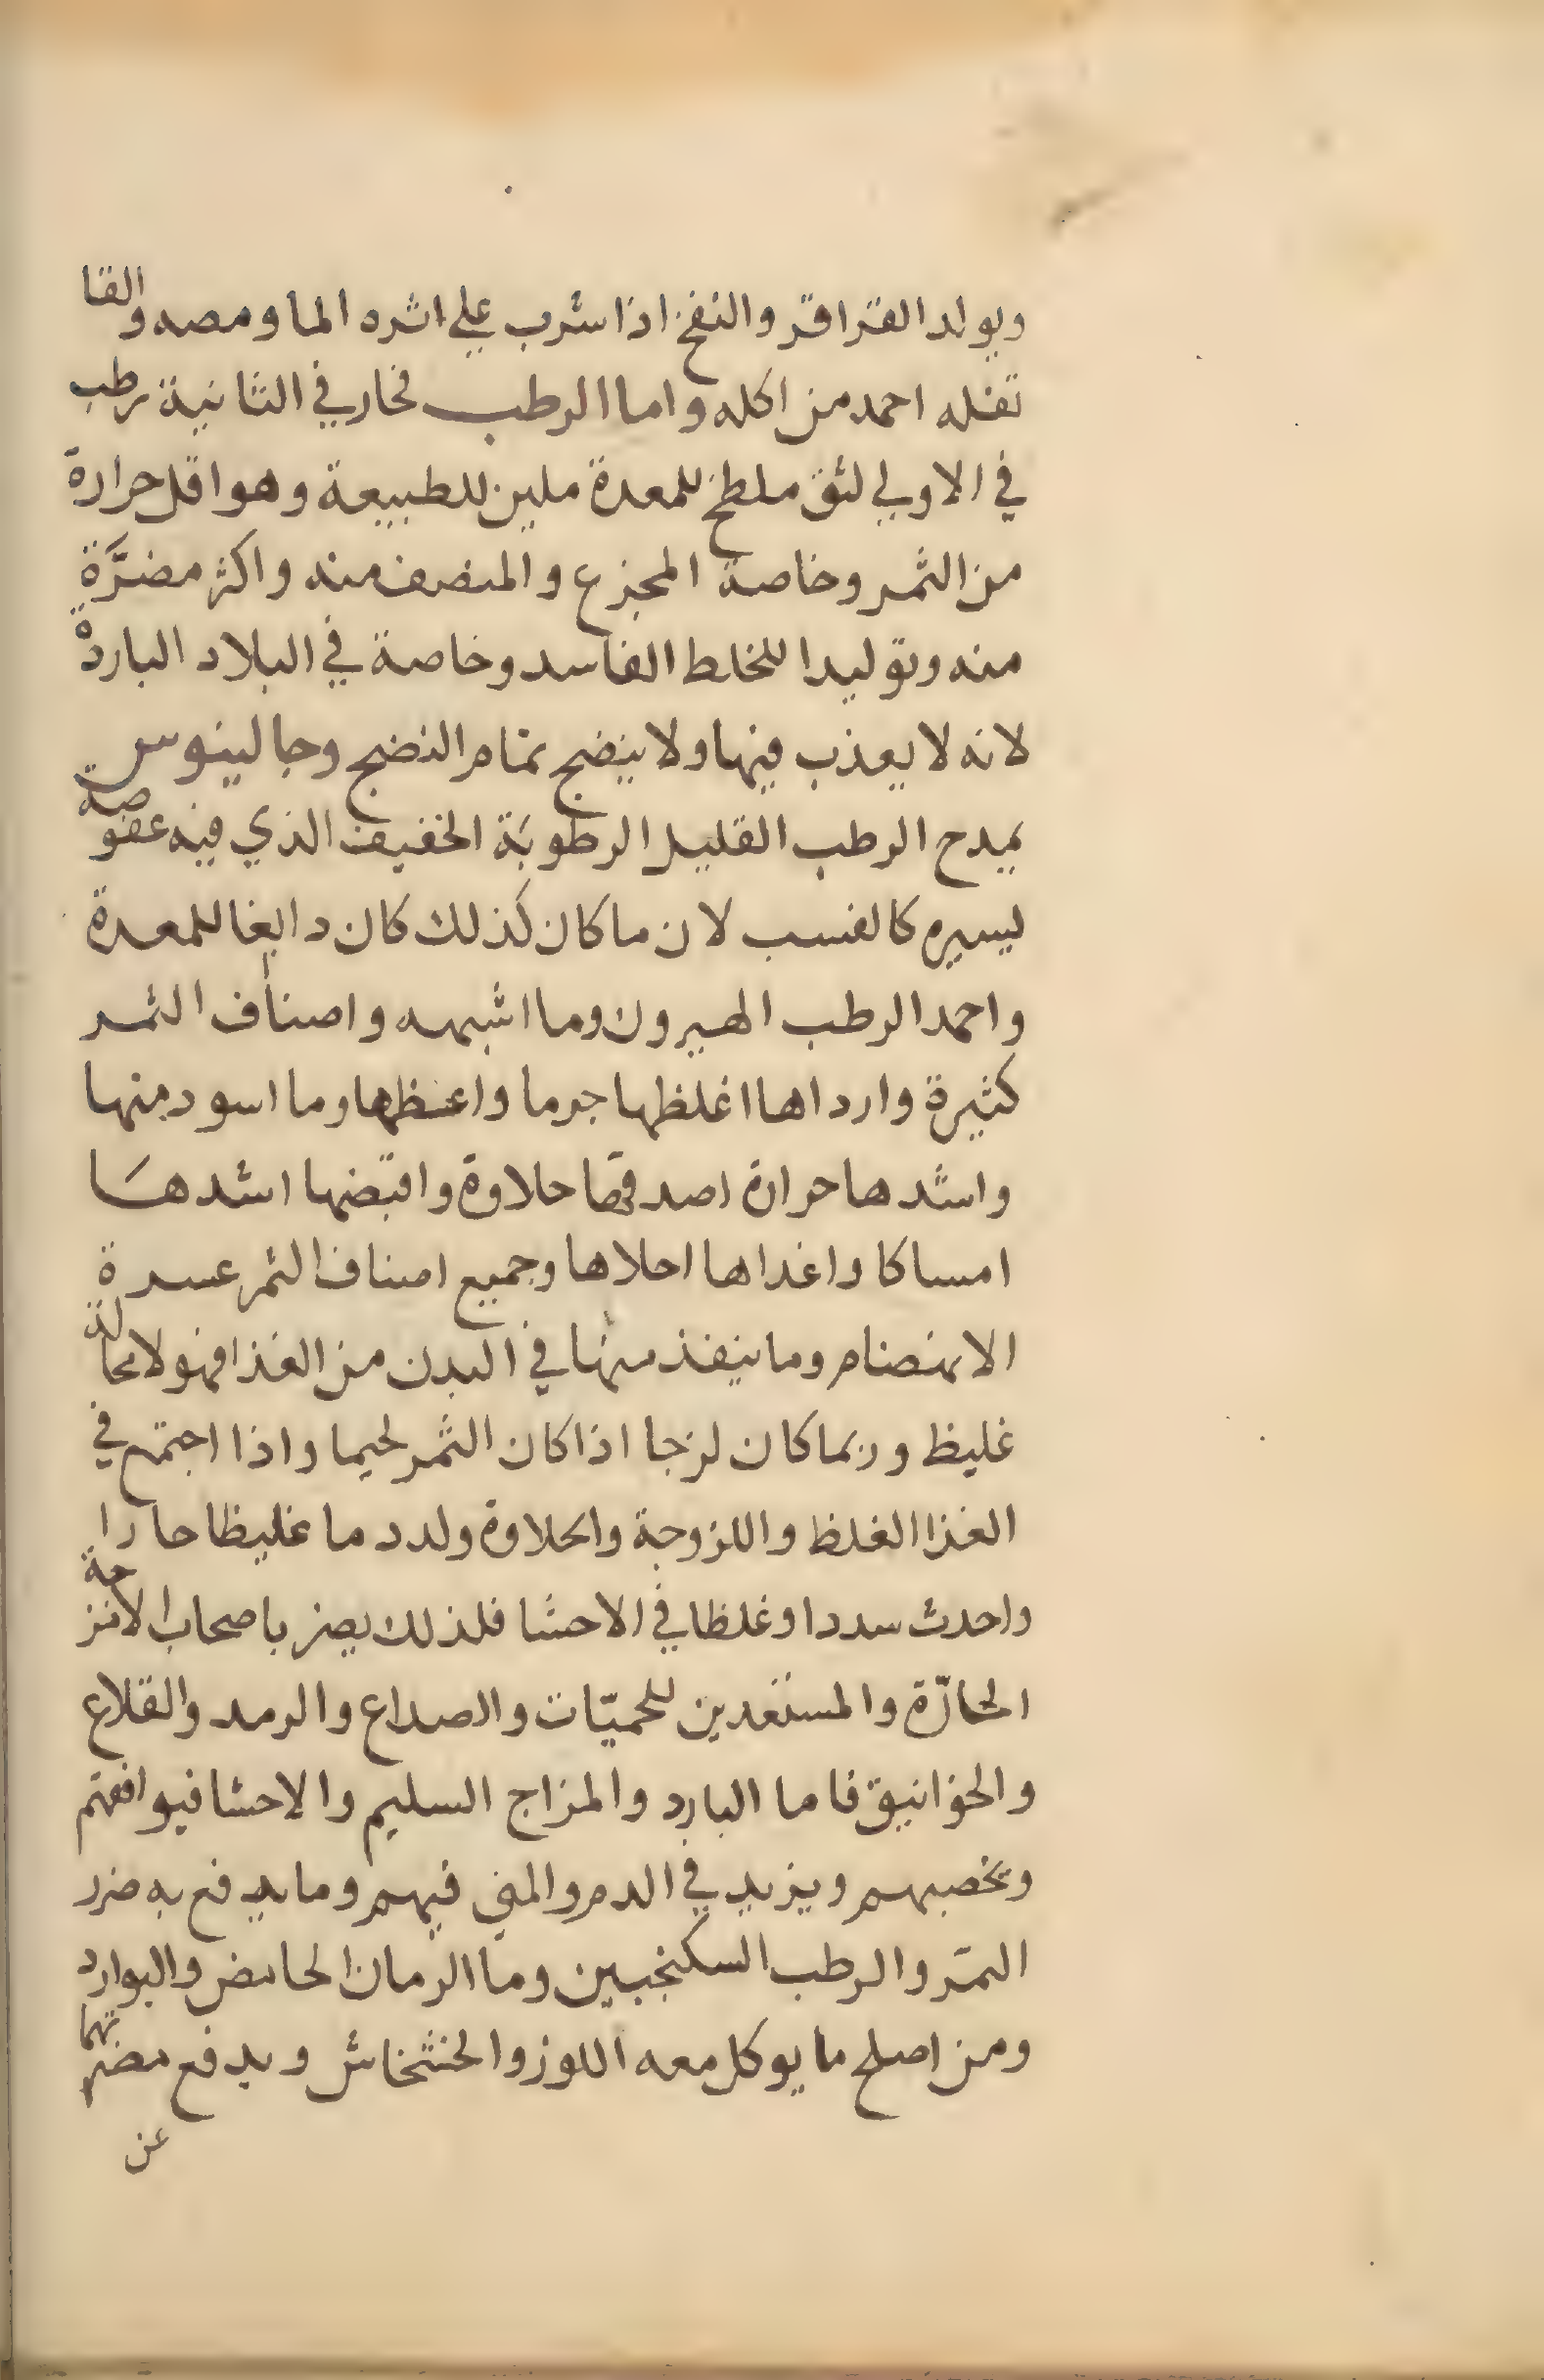 ويولد القراقر والنفخ اذا شرب علي اثره الما ومصه والقا
تفله احمد من اكله واما الرطب فحار في الثانية رطب
في الاولي لثق ملطخ للمعدة ملين للطبيعة وهو اقل حرارة
من التمر وخاصة المجزع والمنصف منه واكثر مضرَّة
منه وتوليدا للخلط الفاسد وخاصة في البلاد الباردة
لانه لا يعذب فيها ولا ينضج تمام النضج وجالينوس
يمدح الرطب القليل الرطوبَة الخفيف الذي فيه عفوصة
يسيره كالقسب لان ما كان كذلك كان دابغا للمعدة
واحمد الرطب الهيرون وما اشبهه واصناف التمر
كثيرة وارداها اغلظها جرما واعظمها وما اسود منها
واشدها حرارة اصدقها حلاوة واقبضها اشدهَا
امساكا واغداها احلاها وجميع اصناف التمر عسرة
الانهضام وما ينفذ منها في البدن من الغذا فهو لا محالة
غليظ وربما كان لزجا اذا كان التمر لحيما واذا اجتمع في
الغذا الغلظ واللزوجة والحلاوة ولد دما غليظا حارا
واحدث سددا وغلظا في الاحشا فلذلك يضر باصحاب الامزجة
الحارّة والمستعدين للحميّات والصداع والرمد والقلاع
والخوانيق فاما البارد والمزاج السليم والاحشا فيوافقهم
ويخصبهم ويزيد في الدم والمني فيهم وما يدفع به ضرر
التمر والرطب السكنجبين وما الرمان الحامض والبوارد
ومن اصلح ما يوكل معه اللوز والخشخاش ويدفع مضرتهما
عن